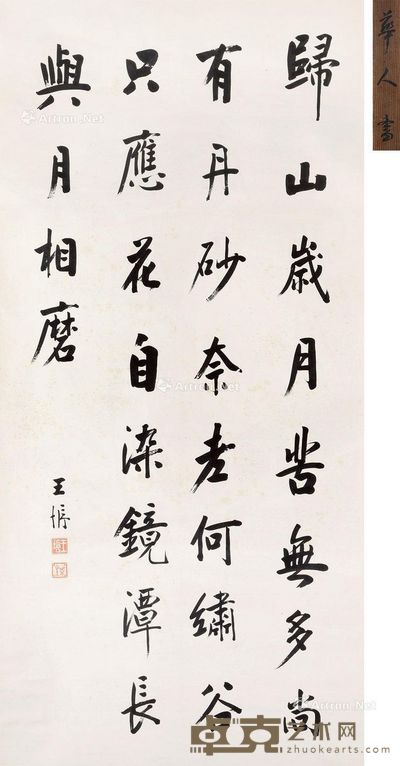 歸山歲月苦無多尚
有丹砂奈老何繡谷
只應花自染鏡潭長
與月相磨
王
華人書
Artron.Net
Artron.Net
Artron.Net
Artron.Net
卓克艺术网
zhuokearts.com